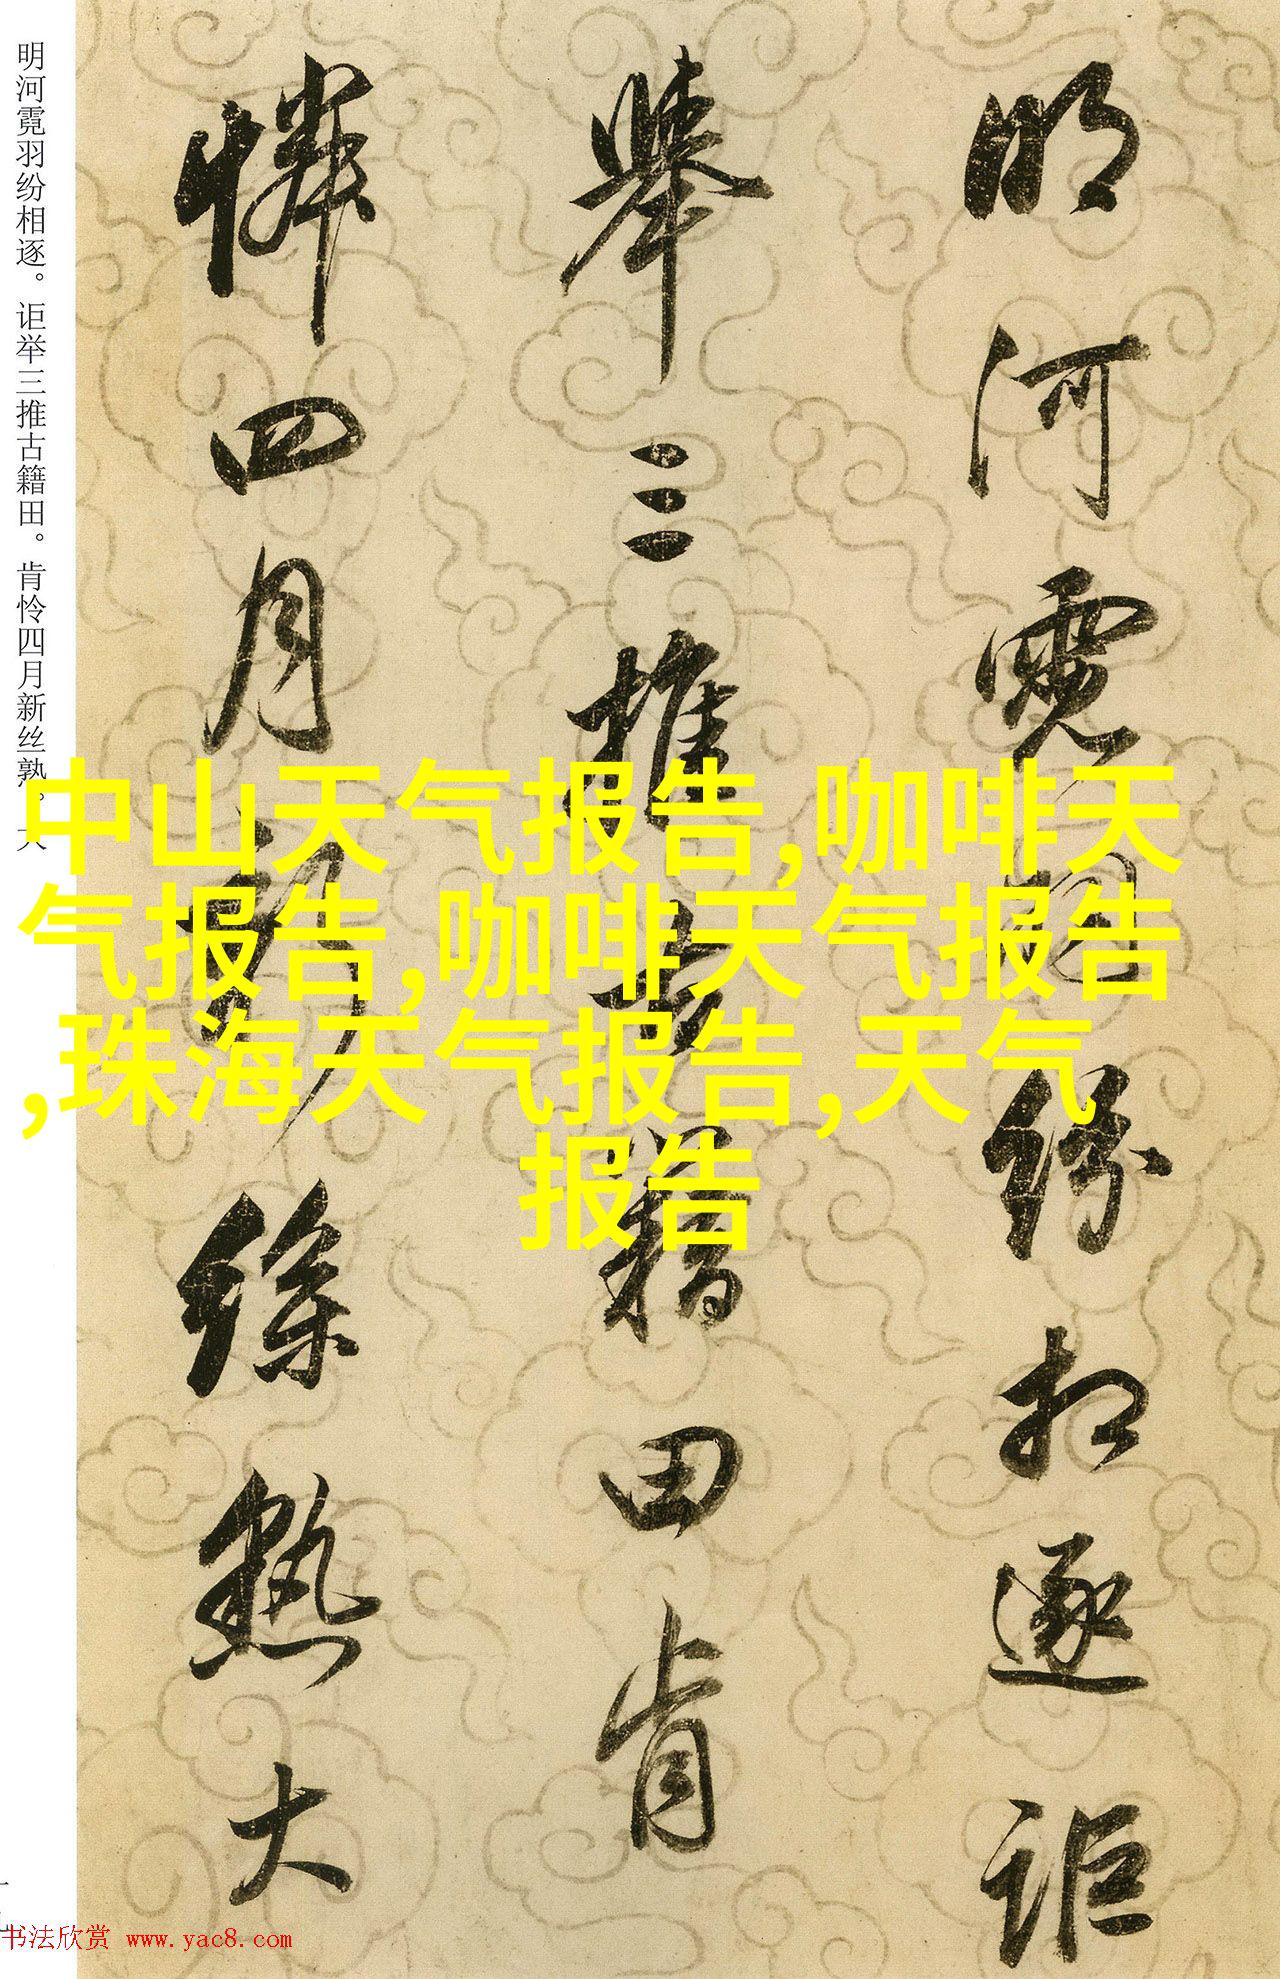 明河霓羽纷相逐。讵举三推古籍田。肯怜四月新丝熟。大
明河霓羽紛相逐詎
舉三推古籍田肯
憐四月新絲熟大
中山天气报告,咖啡天
气报告,咖啡天气报告
,珠海天气报告,天气
报告
书法欣赏 www.yac8.com